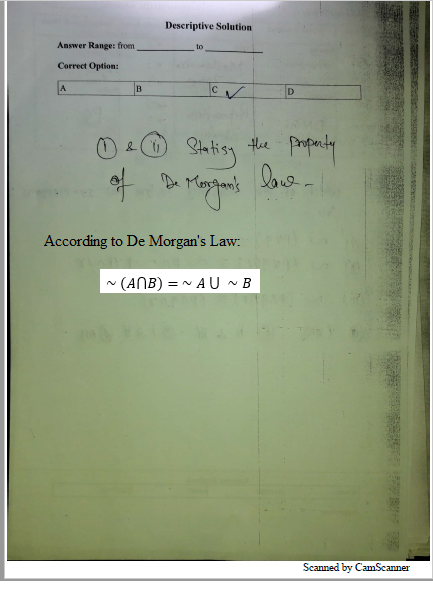 Descriptive Solution
Answer Range: from ____________ to ____________
Correct Option:
A B C ✓ D
① & ⑪ Statisy the property
of De Morgan's law -
According to De Morgan's Law:
~ (A⋂B) = ~ A ⋃ ~ B
Scanned by CamScanner